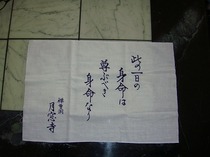 此の一日の
身命は
尊ぶべき
身命なり
禅曹洞
月窓寺